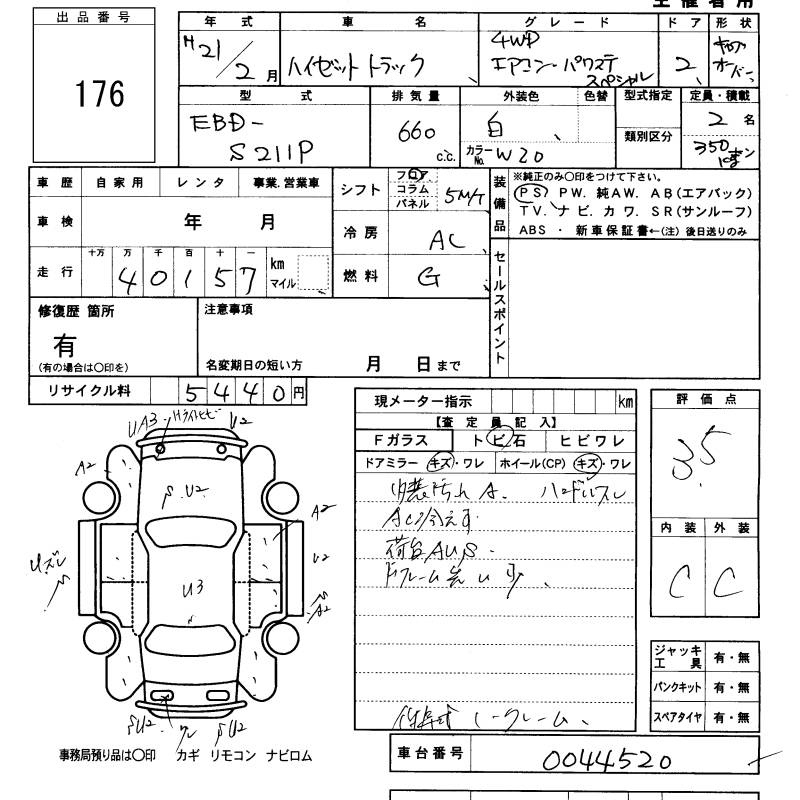 出品番号
176
年式
H21/2月
車名
ハイゼット トラック
グレード
4WD
エアコン・パワステ
スペシャル
ドア
2
形状
型式
EBD-
S211P
排気量
660
c.c.
外装色
白
色替
カラーNo. W20
型式指定
類別区分
定員・積載
2名
350
車歴 自家用 レンタ 事業.営業車
車検 年 月
走行 十万 万 千 百 十 一
40157
km
マイル
シフト
フロア
コラム
パネル
5M/T
冷房 AC
燃料 G
装備品
※純正のみ〇印をつけて下さい。
PS. PW. 純AW. AB(エアバック)
TV. ナビ. カワ. SR(サンルーフ)
ABS ・ 新車保証書←(注) 後日送りのみ
セールスポイント
修復歴 箇所
有
(有の場合は〇印を)
注意事項
名変期日の短い方 月 日まで
リサイクル料 5440円
現メーター指示 km
【査定員記入】
Fガラス トビ石 ヒビワレ
ドアミラー キズ・ワレ ホイール(CP) キズ・ワレ
内装汚れA. ハンドルスレ
AC冷えず
荷台AUS.
評価点
3.5
内装 外装
C C
ジャッキ
工具
有・無
パンクキット 有・無
スペアタイヤ 有・無
UA3
U2
A2
U2
A2
U2
A2
U3
U2
ワレ
U2
事務局預り品は〇印 カギ リモコン ナビロム
車台番号 0044520